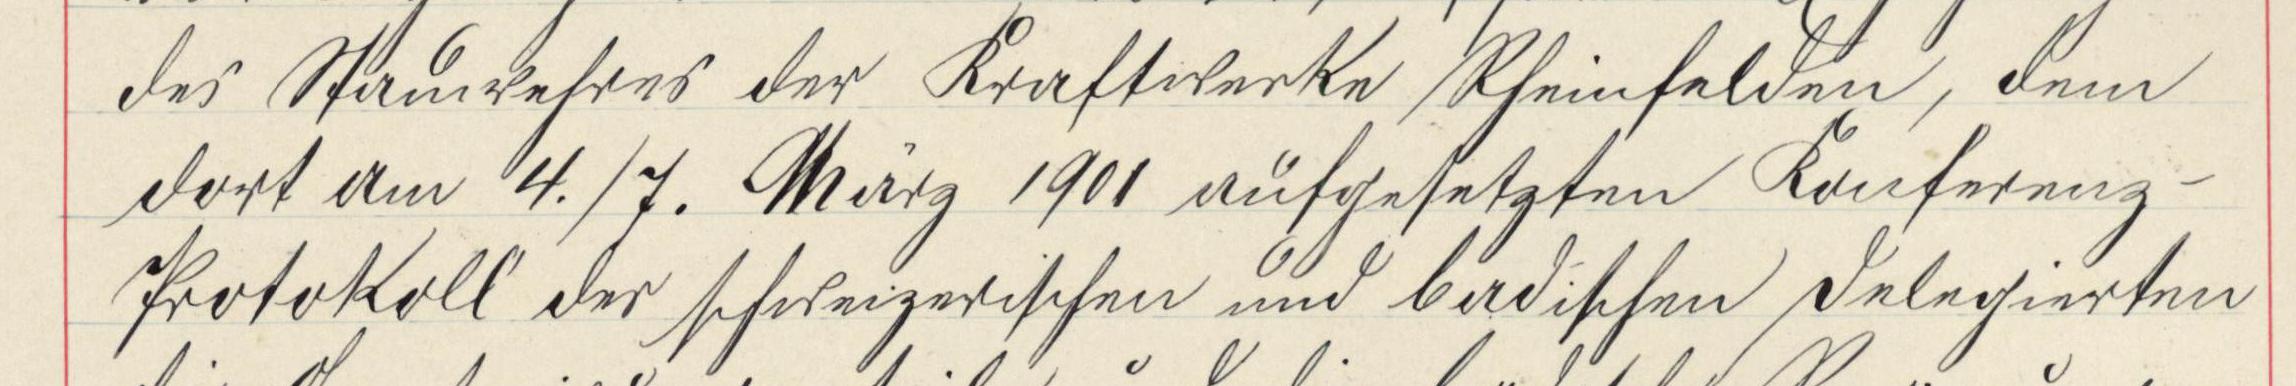 des Stauwehres der Kraftwerke Rheinfelden, dem
dort am 4./7. März 1901 aufgesetzten Konferenz-
Protokoll der schweizerischen und badischen Delegierten